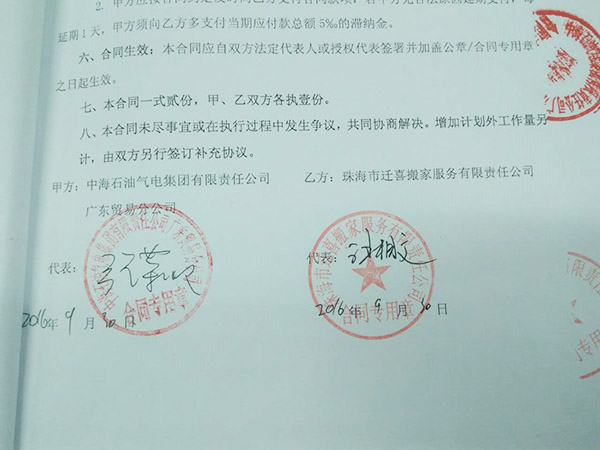 2. 甲方应按合同约定及时向乙方支付合同款项，若甲方无合法原因延期支付，每
延期 1 天，甲方须向乙方多支付当期应付款总额 5‰的滞纳金。
六、合同生效：本合同应自双方法定代表人或授权代表签署并加盖公章/合同专用章
之日起生效。
七、本合同一式贰份，甲、乙双方各执壹份。
八、本合同未尽事宜或在执行过程中发生争议，共同协商解决。增加计划外工作量另
计，由双方另行签订补充协议。
甲方：中海石油气电集团有限责任公司 乙方：珠海市迁喜搬家服务有限责任公司
广东贸易分公司
代表： 代表：
合同专用章
珠海市迁喜搬家服务有限责任公司
合同专用章
2016年 9 月 30 日 2016 年 9 月 30 日